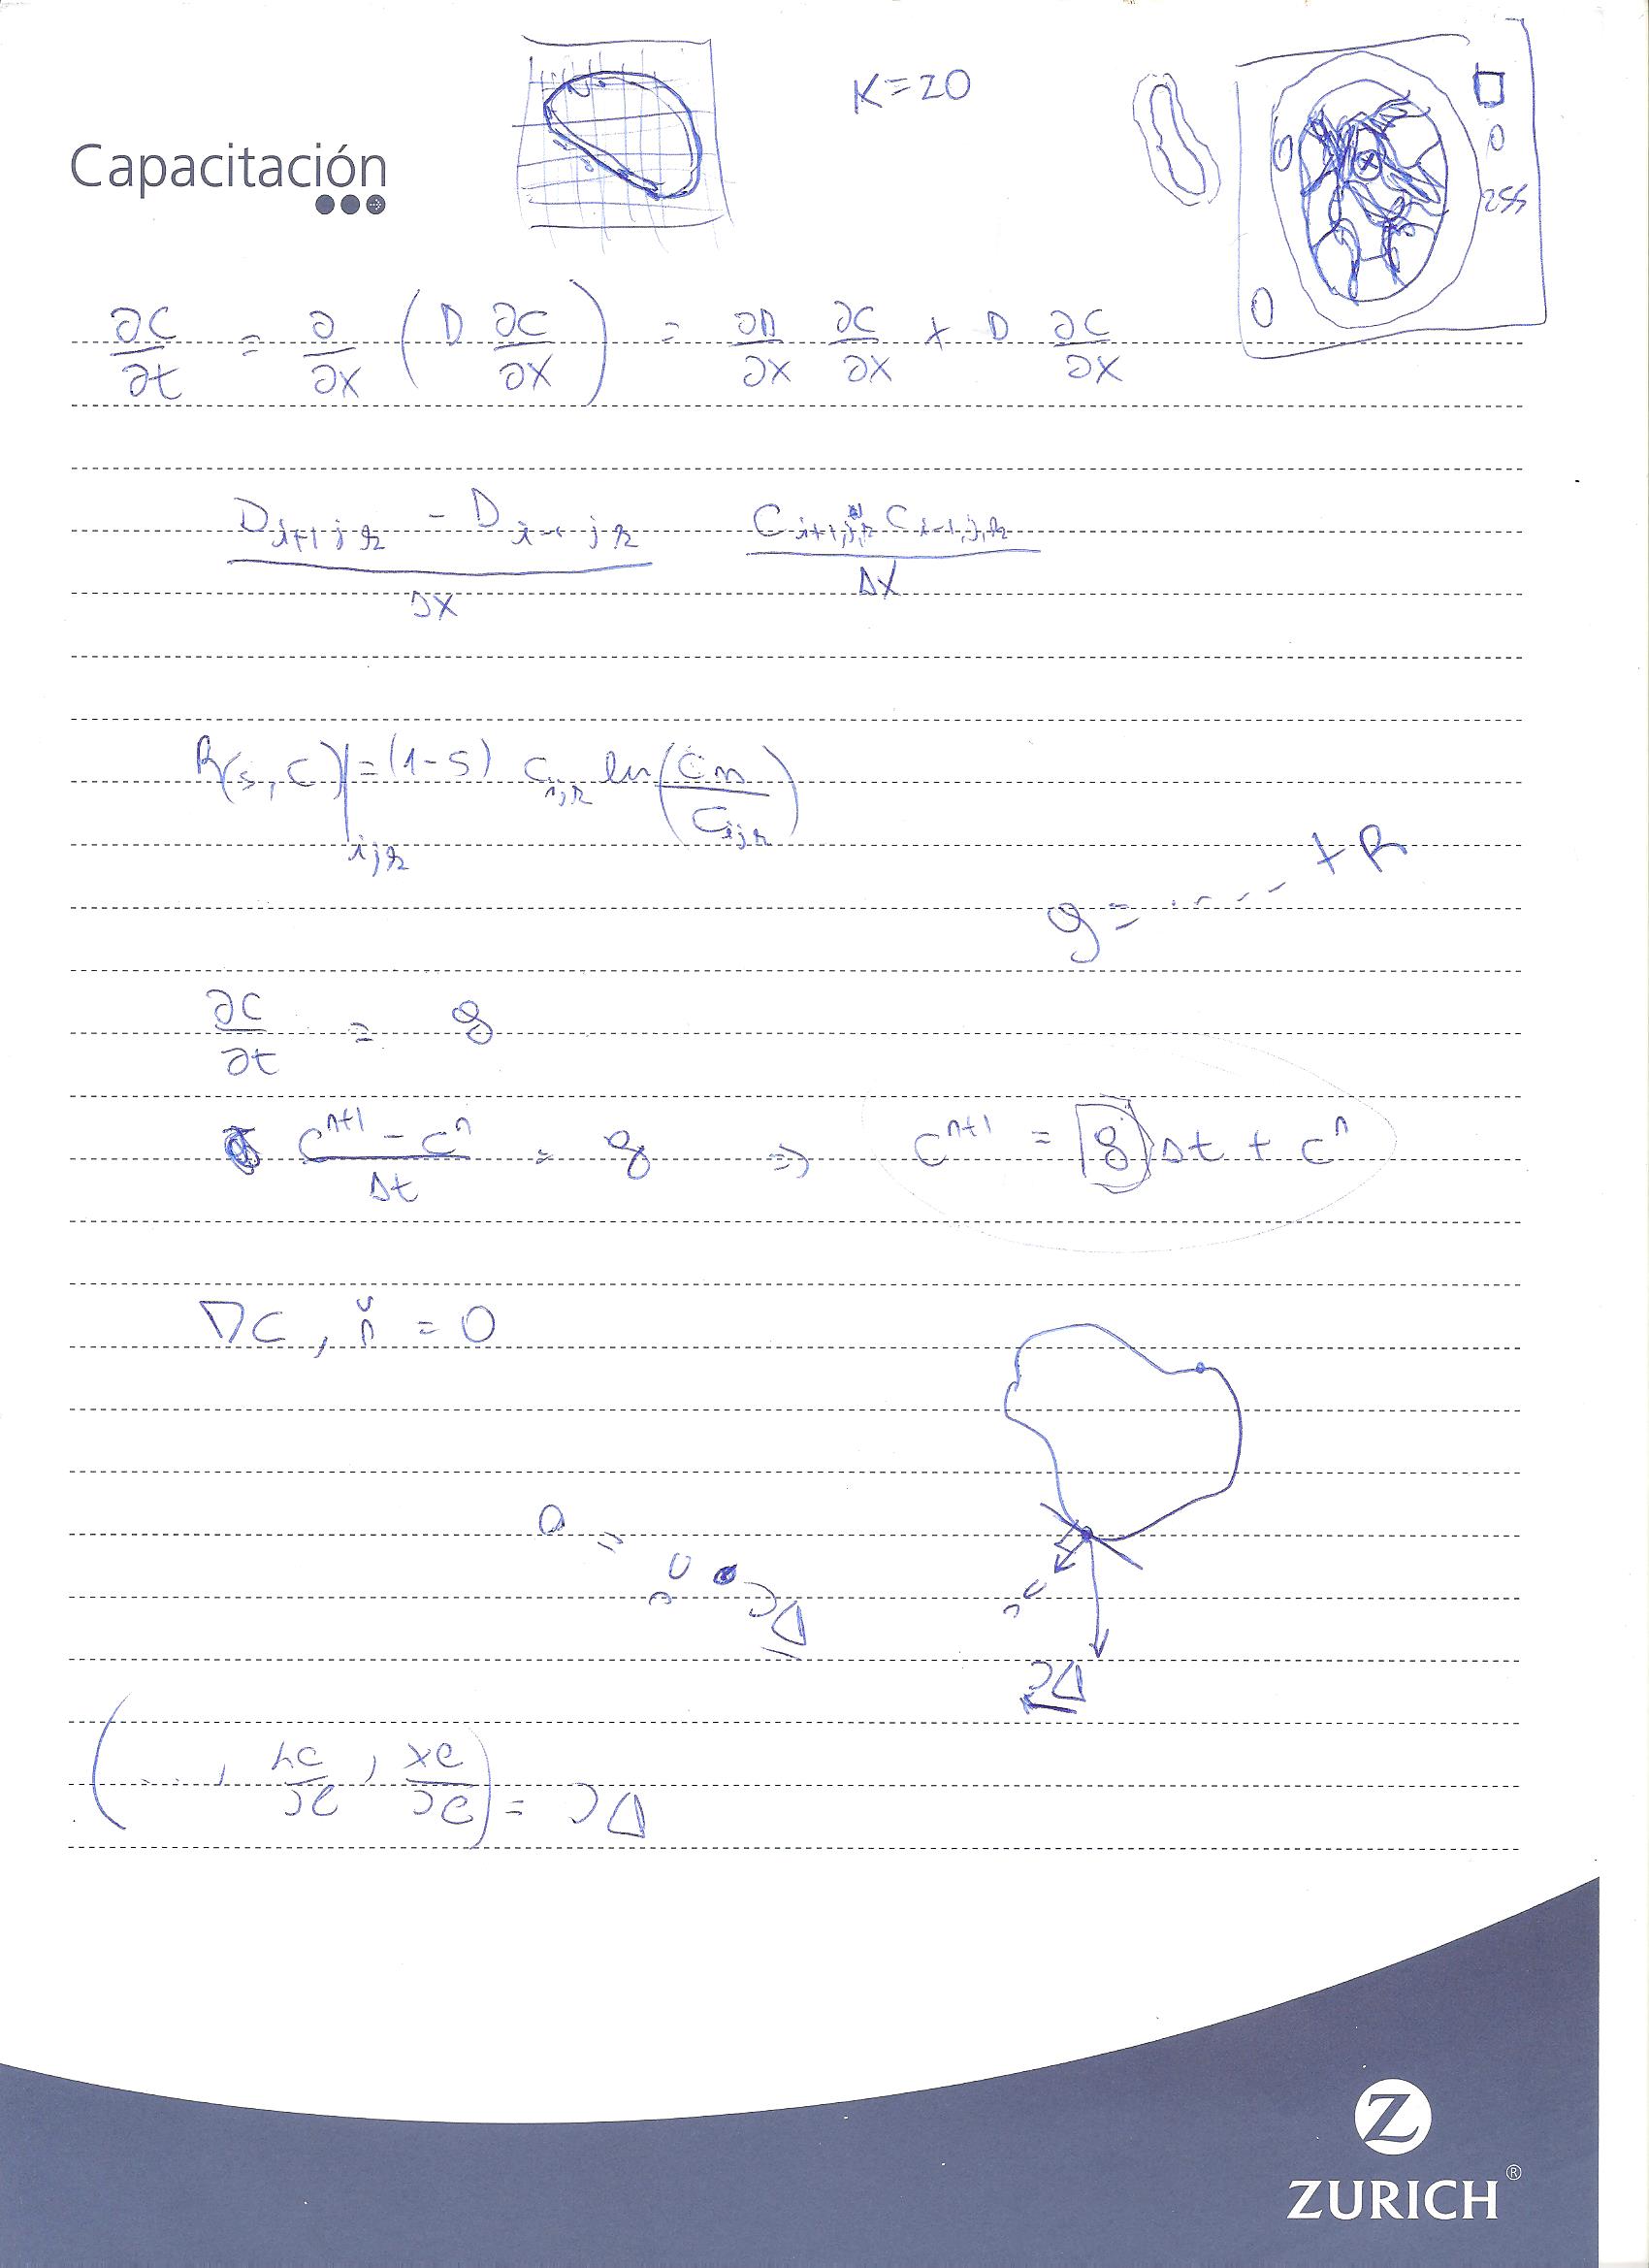 K=20
Capacitación
0
0
255
0
∂C/∂t = ∂/∂x (D ∂C/∂x) = ∂D/∂x ∂C/∂x + D ∂C/∂x
(D_{i+1 j k} - D_{i-1 j k})/Δx (C_{i+1,j,k} - C_{i-1,j,k})/Δx
R(s,C)|_{ijk} = (1-S) C_{ijk} ln(C_m/C_{ijk})
g = ..... + R
∂C/∂t = g
(C^{n+1} - C^n)/Δt = g ⇒ C^{n+1} = g Δt + C^n
∇C, ň = 0
∇C • ň = 0
ň
∇C
∇C = (∂C/∂x, ∂C/∂y, ...)
Z
ZURICH®